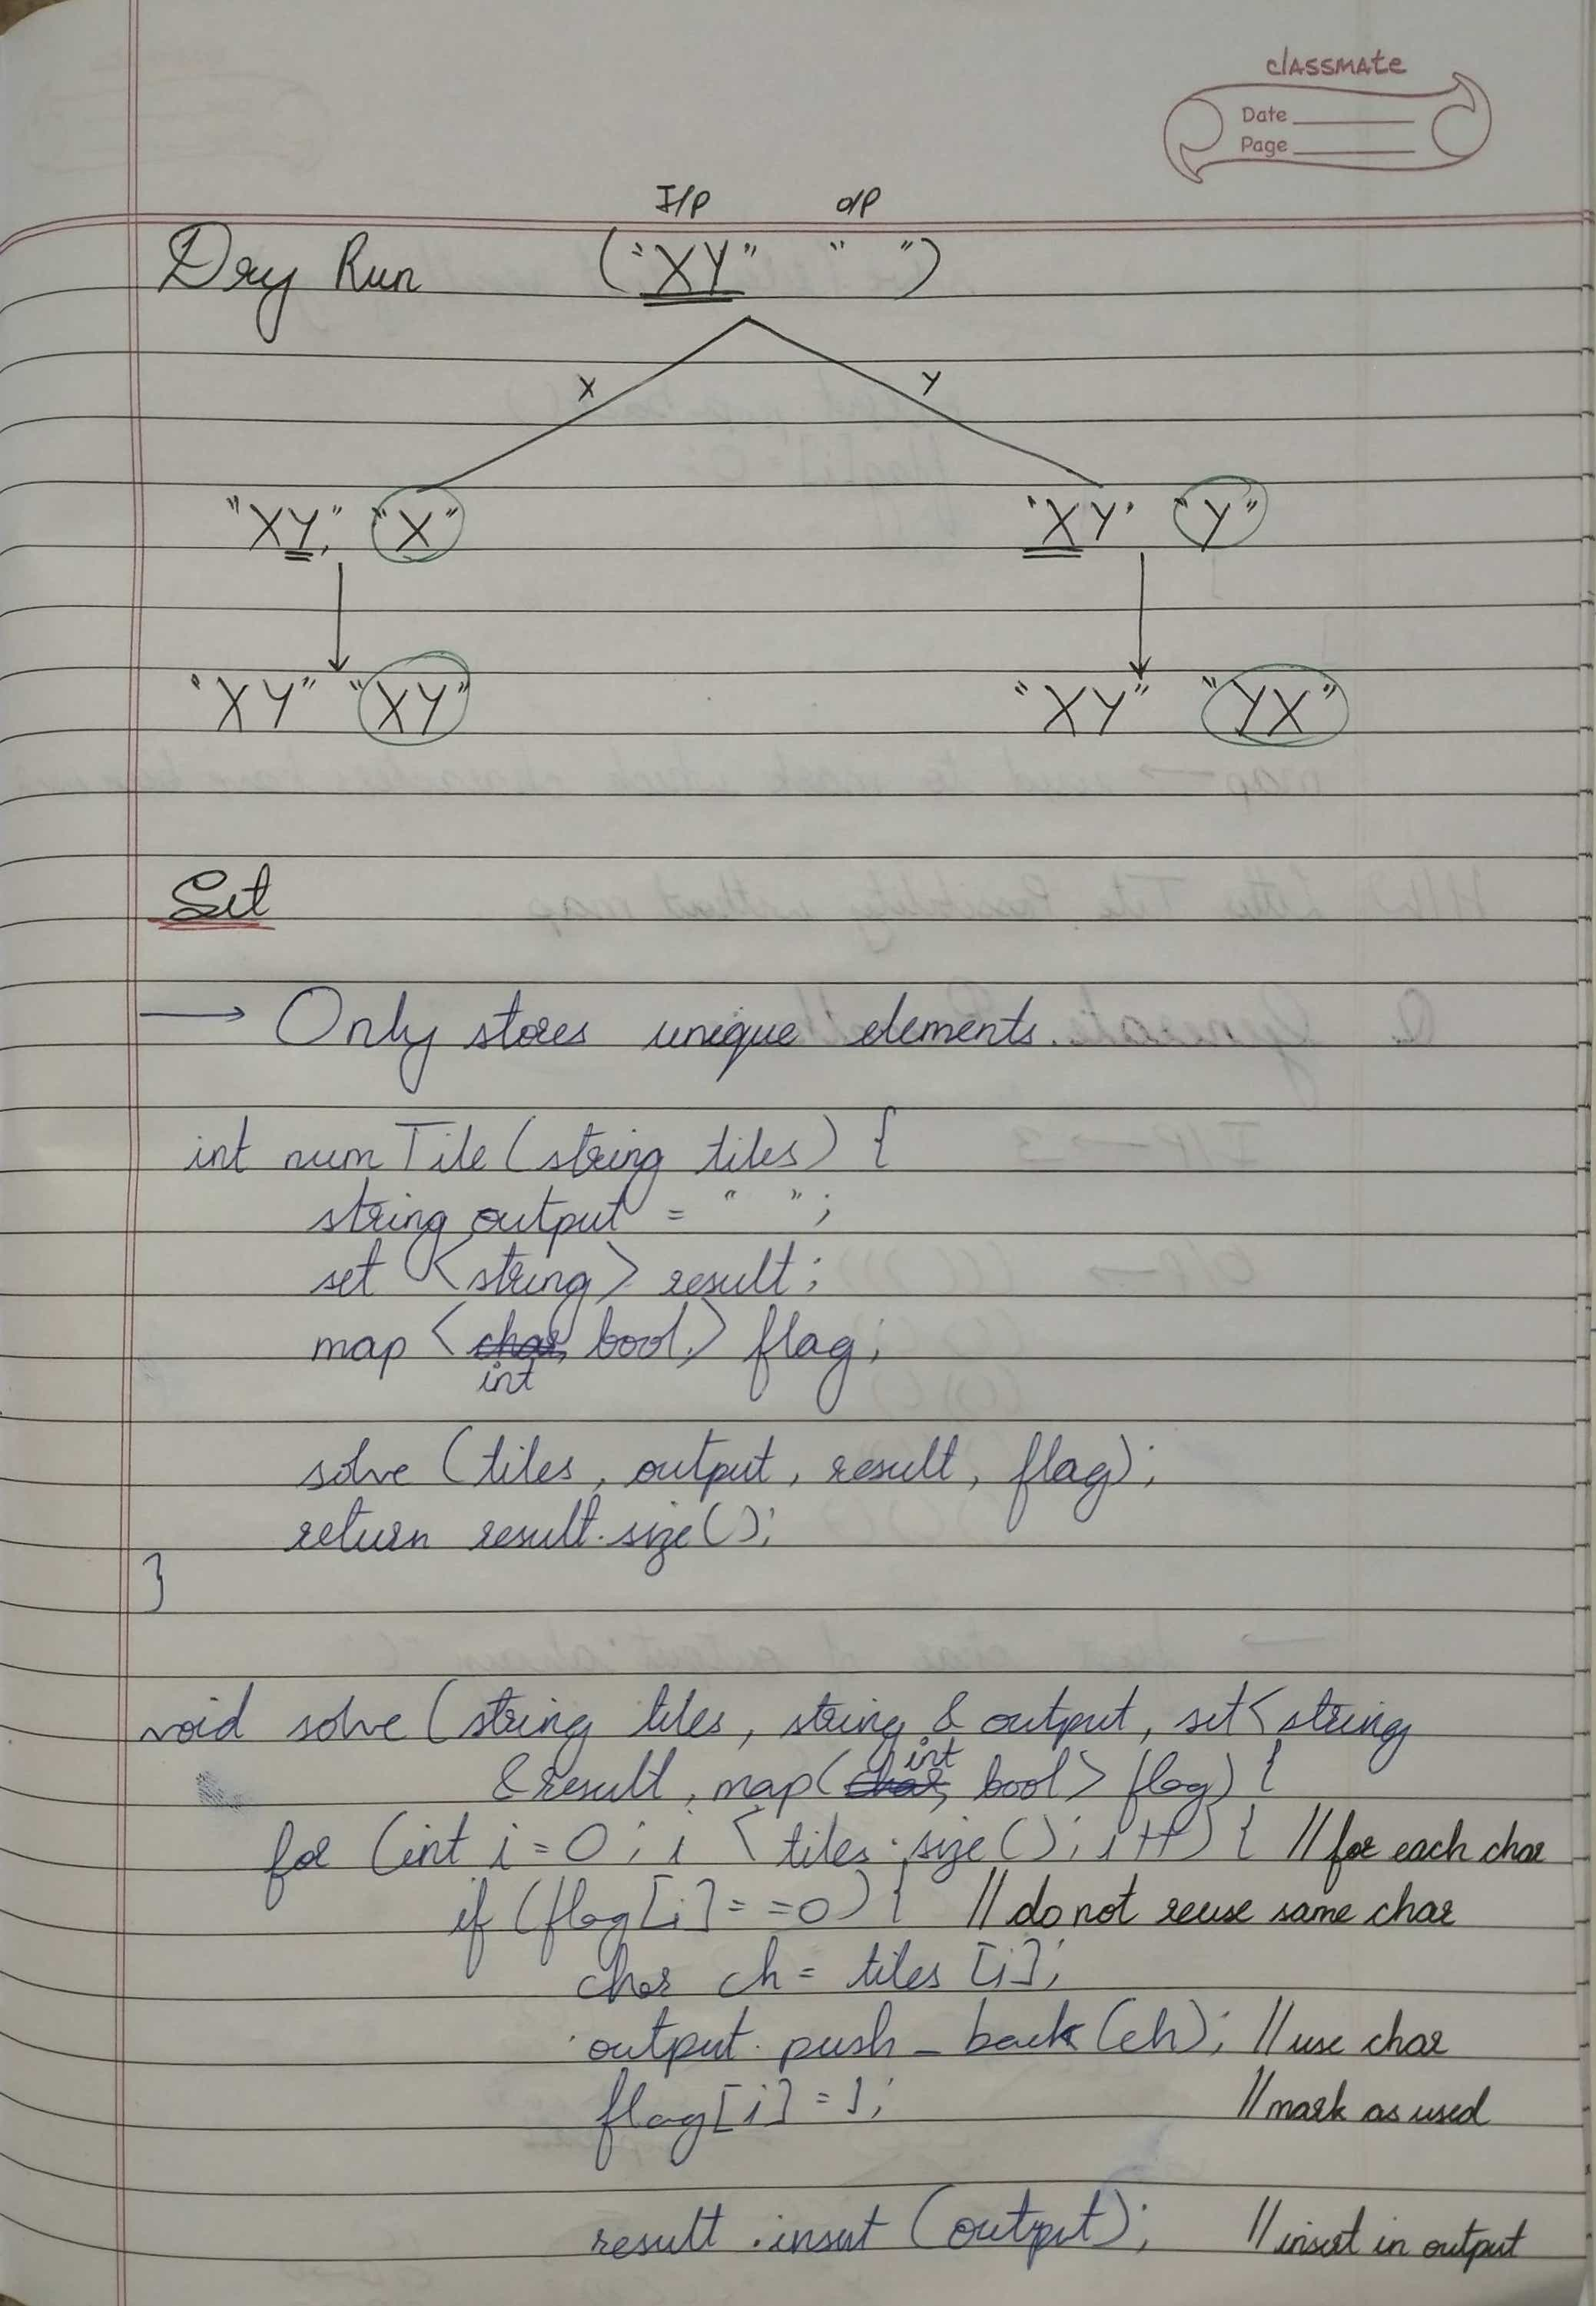 classmate
Date
Page
I/P O/P
Dry Run ("XY" " ")
X Y
"XY", "X" "XY" "Y"
"XY" "XY" "XY" "YX"
Set
→ Only stores unique elements.
int numTile(string tiles) {
string output = " ";
set <string> result;
map <char, bool> flag;
int
solve (tiles, output, result, flag);
return result.size();
}
void solve (string tiles, string & output, set<string
int
&result, map(char, bool> flag) {
for (int i = 0; i < tiles.size(); i++) { // for each char
if (flag[i] == 0) { // do not reuse same char
char ch = tiles [i];
output. push_back(ch); // use char
flag[i] = 1; // mark as used
result.insert (output); // insert in output